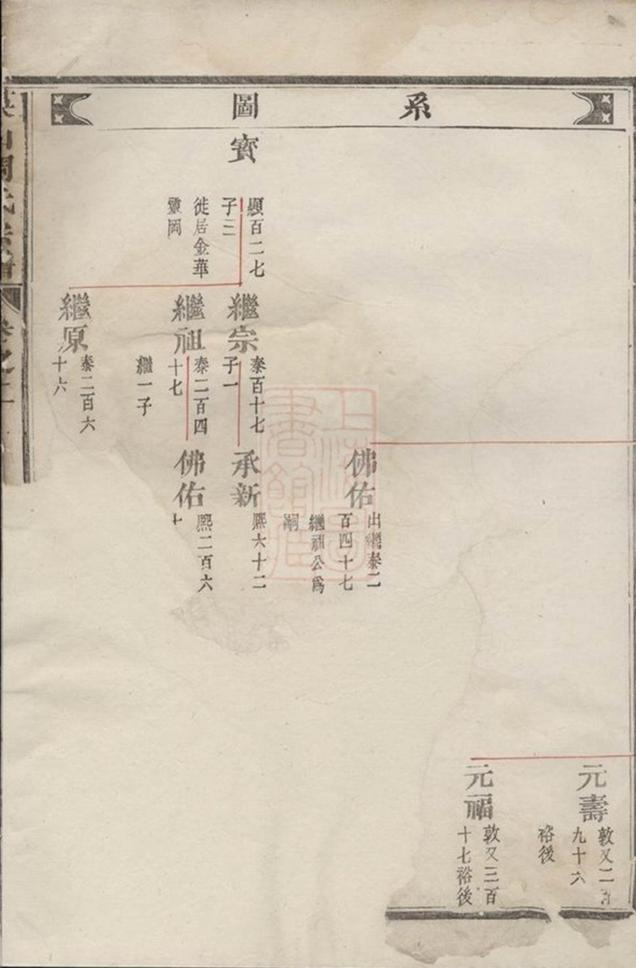 系圖
元壽
敦又二百
九十六
裕後
元福
敦又三百
十七裕後
佛佑
出繼泰二
百四十七
繼祖公爲
嗣
寳
顯百二七
子三
徙居金華
靈岡
繼宗
泰百十七
子一
繼祖
泰二百四
十七
繼一子
繼原
泰二百六
十六
承新
熙六十二
佛佑
熙二百六